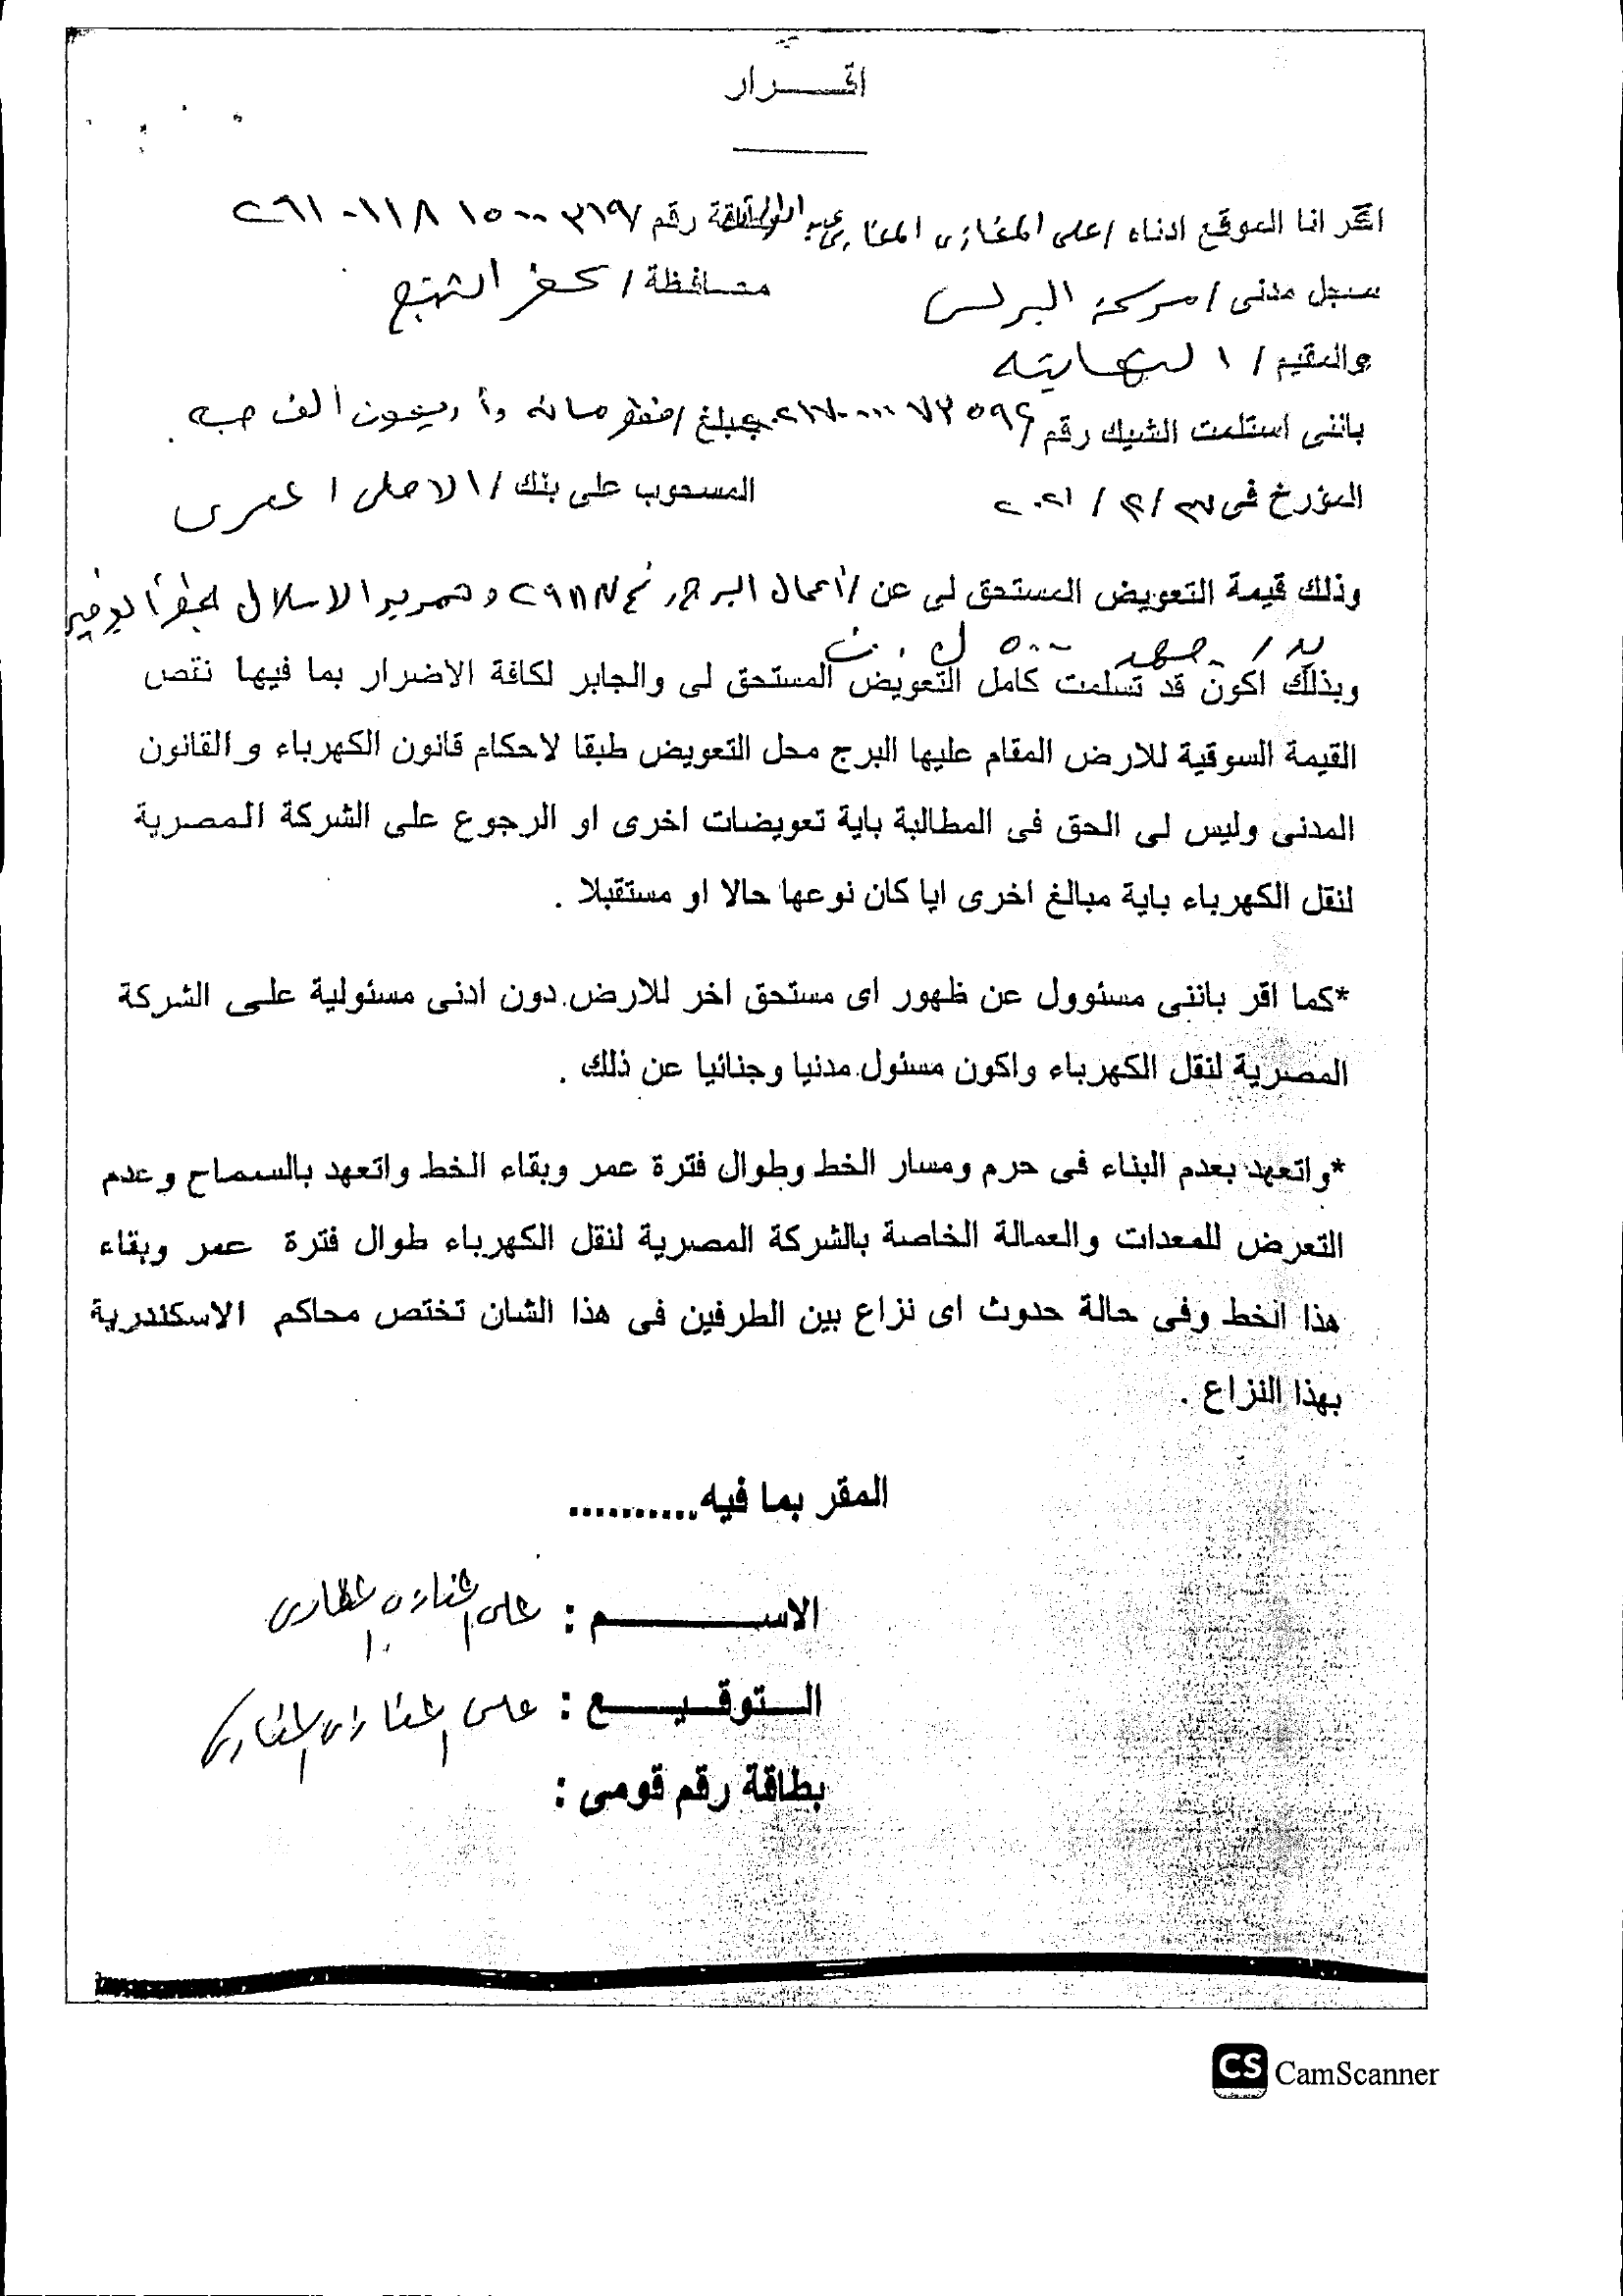 اقـــــرار
اقر انا الموقع ادناه / على المغازى المغازى البطاقة رقم / ٢٦١٠١١٨١٥٠٠٣١٩
سجل مدنى / مركز البرلس محافظة / كفر الشيخ
والمقيم /
باننى استلمت الشيك رقم / بمبلغ / فقط مائه وأربعون ألف جنيه .
المؤرخ فى / ٢٠٢١ المسحوب على بنك / الاهلى المصرى
وذلك قيمة التعويض المستحق لى عن / أعمال البرج رقم وتمرير الاسلاك لخط أبو قير
جهد ٥٠٠ ك . ف
وبذلك اكون قد تسلمت كامل التعويض المستحق لى والجابر لكافة الاضرار بما فيها نتص
القيمة السوقية للارض المقام عليها البرج محل التعويض طبقا لاحكام قانون الكهرباء والقانون
المدنى وليس لى الحق فى المطالبة باية تعويضات اخرى او الرجوع على الشركة المصرية
لنقل الكهرباء باية مبالغ اخرى ايا كان نوعها حالا او مستقبلا .
*كما اقر باننى مسئوول عن ظهور اى مستحق اخر للارض دون ادنى مسئولية على الشركة
المصرية لنقل الكهرباء واكون مسئول مدنيا وجنائيا عن ذلك .
*واتعهد بعدم البناء فى حرم ومسار الخط وطوال فترة عمر وبقاء الخط واتعهد بالسماح وعدم
التعرض للمعدات والعمالة الخاصة بالشركة المصرية لنقل الكهرباء طوال فترة عمر وبقاء
هذا الخط وفى حالة حدوث اى نزاع بين الطرفين فى هذا الشان تختص محاكم الاسكندرية
بهذا النزاع .
المقر بما فيه...........
الاســـــــــم : على المغازى المغازى
الـــتوقـــيـــــع : على المغازى المغازى
بطاقة رقم قومى :
CS CamScanner